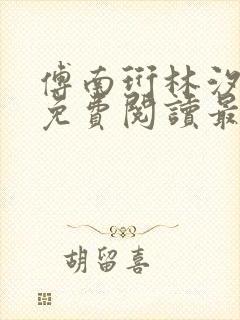 傅南衍林汐
免費閱讀最
胡留喜